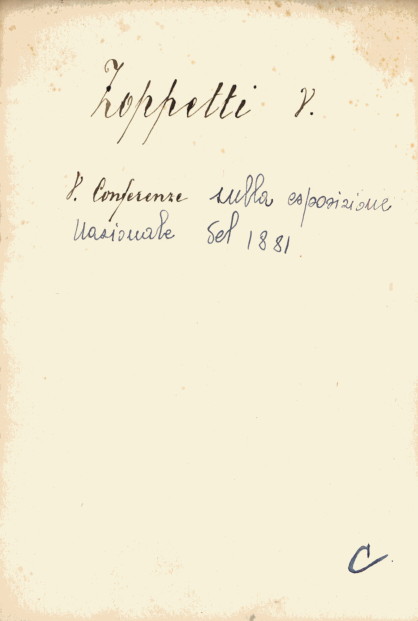 Zoppetti V.
V. Conferenze sulla esposizione
Nazionale del 1881
C